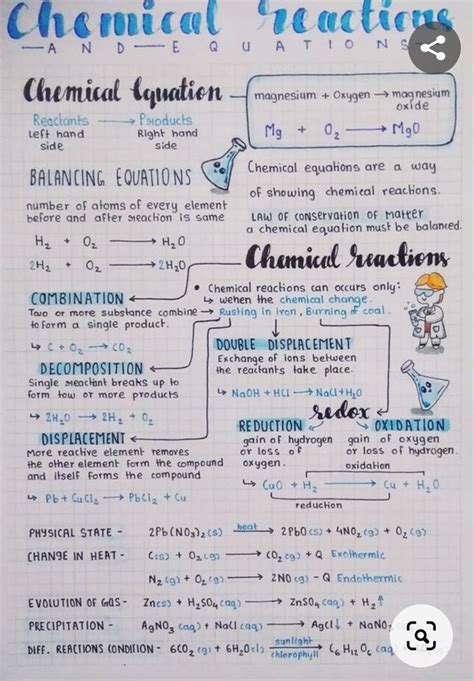 Chemical reactions
AND EQUATIONS
Chemical Equation
Reactants → Products
Left hand side
Right hand side
magnesium + Oxygen → magnesium oxide
Mg + O₂ → MgO
BALANCING EQUATIONS
number of atoms of every element
before and after reaction is same
H₂ + O₂ → H₂O
2H₂ + O₂ → 2H₂O
Chemical equations are a way
of showing chemical reactions.
LAW OF CONSERVATION OF MATTER
a chemical equation must be balanced.
Chemical reactions
• Chemical reactions can occurs only:
↳ wehen the chemical change.
Rusting in Iron, Burning of coal.
COMBINATION
Two or more substance combine →
to form a single product.
↳ C + O₂ → CO₂
DECOMPOSITION
Single reactant breaks up to
form tow or more products
↳ 2H₂O → 2H₂ + O₂
DISPLACEMENT
More reactive element removes
the other element form the compound
and itself forms the compound
↳ Pb + CuCl₂ → PbCl₂ + Cu
DOUBLE DISPLACEMENT
Exchange of ions between
the reactants take place.
↳ NaOH + HCl → NaCl + H₂O
redox
REDUCTION
gain of hydrogen
or loss of
oxygen.
OXIDATION
gain of oxygen
or loss of hydrogen.
oxidation
↳ CuO + H₂ → Cu + H₂O
reduction
PHYSICAL STATE - 2Pb(NO₃)₂(s) heat → 2PbO(s) + 4NO₂(g) + O₂(g)
CHANGE IN HEAT - C(s) + O₂(g) → CO₂(g) + Q Exothermic
N₂(g) + O₂(g) → 2NO(g) - Q Endothermic
EVOLUTION OF GAS - Zn(s) + H₂SO₄(aq) → ZnSO₄(aq) + H₂↑
PRECIPITATION - AgNO₃(aq) + NaCl(aq) → AgCl↓ + NaNO₃
DIFF. REACTIONS CONDITION - 6CO₂(g) + 6H₂O(l) sunlight → chlorophyll C₆H₁₂O₆